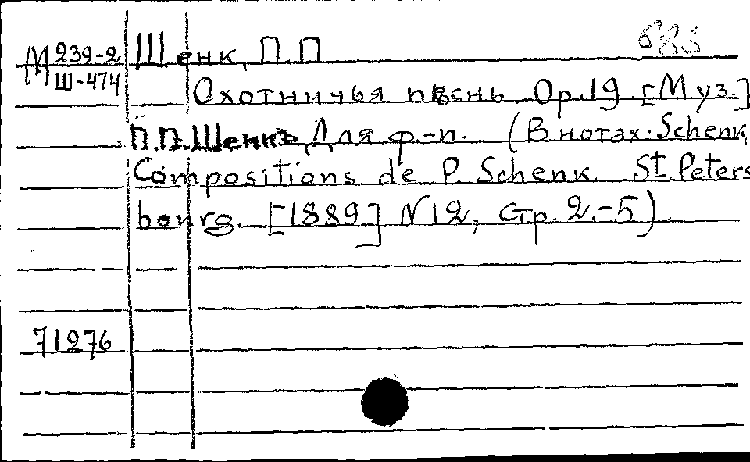 М 239-2
Ш-474
Шенк, П.П
Охотничья пѣснь Ор.19 [Муз.]
П.П.Шенкъ, Для ф.-п. (В нотах: Schenk,
Compositions de P. Schenk. St. Peters
bourg. [1889] N12, Стр. 2.-5)
71276